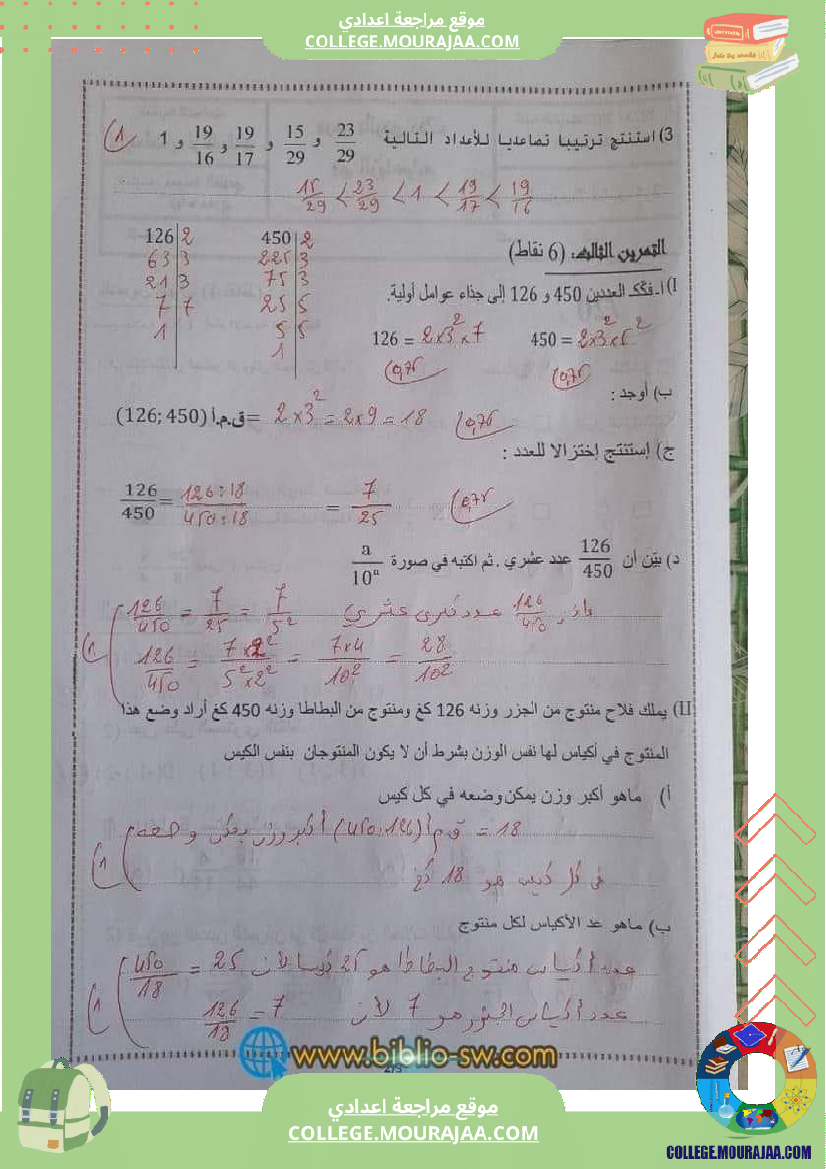 موقع مراجعة اعدادي
COLLEGE.MOURAJAA.COM
3) استنتج ترتيبا تصاعديا للأعداد التالية 23/29 و 15/29 و 19/17 و 19/16 و 1
1
15/29 < 23/29 < 1 < 19/17 < 19/16
التمرين الثالث: (6 نقاط)
I) أ- فكّك العددين 450 و 126 إلى جذاء عوامل أولية.
126 | 2
63 | 3
21 | 3
7 | 7
1
450 | 2
225 | 3
75 | 3
25 | 5
5 | 5
1
450 = 2x3²x5²
126 = 2x3²x7
0,75
0,75
ب) أوجد :
ق.م.أ (126; 450) = 2x3² = 2x9 = 18
0,75
ج) إستنتج إختزالا للعدد :
126/450 = 126:18/450:18 = 7/25
0,75
د) بيّن أن 126/450 عدد عشري . ثم اكتبه في صورة a/10ⁿ
126/450 = 7/25 = 7/5² إذن 126/450 عدد عشري
126/450 = 7x2²/5²x2² = 7x4/10² = 28/10²
1
II) يملك فلاح منتوج من الجزر وزنه 126 كغ ومنتوج من البطاطا وزنه 450 كغ أراد وضع هذا
المنتوج في أكياس لها نفس الوزن بشرط أن لا يكون المنتوجان بنفس الكيس
أ) ماهو أكبر وزن يمكن وضعه في كل كيس
18 = ق م أ (126، 450) أكبر وزن يمكن وضعه
في كل كيس هو 18 كغ
1
ب) ماهو عد الأكياس لكل منتوج
عدد أكياس منتوج البطاطا هو 25 كيسا لأن 450/18 = 25
عدد أكياس الجزر هو 7 لأن 126/18 = 7
1
www.biblio-sw.com
2/3
موقع مراجعة اعدادي
COLLEGE.MOURAJAA.COM
COLLEGE.MOURAJAA.COM